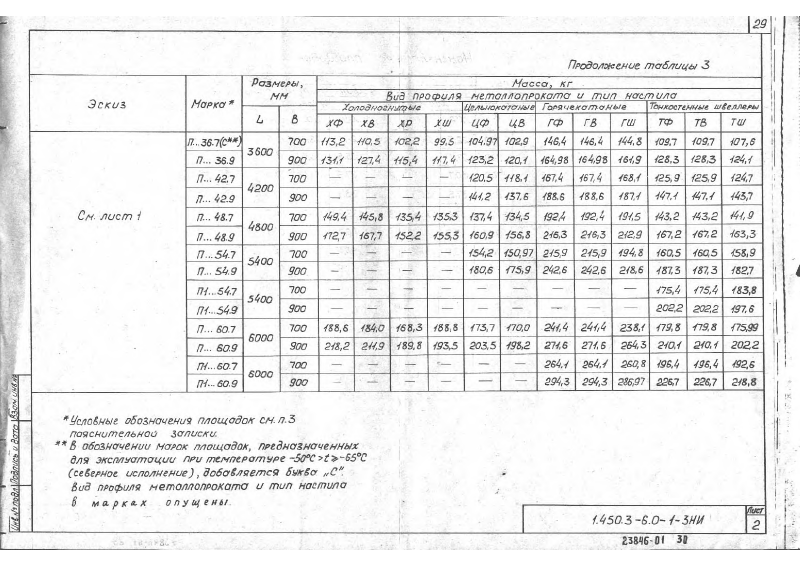 29
Продолжение таблицы 3
Эскиз Марка* Размеры, мм Масса, кг
Вид профиля металлопроката и тип настила
Холодногнутые Цельнокатаные Горячекатаные Тонкостенные швеллеры
L B ХФ ХВ ХР ХШ ЦФ ЦВ ГФ ГВ ГШ ТФ ТВ ТШ
См. лист 1
П...36.7(С**) 3600 700 113,2 110,5 102,2 99,5 104,97 102,9 146,4 146,4 144,8 109,7 109,7 107,6
П...36.9 900 131,1 127,4 115,4 117,4 123,2 120,1 164,98 164,98 161,9 128,3 128,3 124,1
П...42.7 4200 700 — — — — 120,5 118,1 167,4 167,4 168,1 125,9 125,9 124,7
П...42.9 900 — — — — 141,2 137,6 188,6 188,6 187,1 147,1 147,1 143,7
П...48.7 4800 700 149,4 145,8 135,4 135,3 137,4 134,5 192,4 192,4 191,5 143,2 143,2 141,9
П...48.9 900 172,7 167,7 152,2 155,3 160,9 156,8 216,3 216,3 212,9 167,2 167,2 163,3
П...54.7 5400 700 — — — — 154,2 150,97 215,9 215,9 194,8 160,5 160,5 158,9
П...54.9 900 — — — — 180,6 175,9 242,6 242,6 218,6 187,3 187,3 182,7
П1...54.7 5400 700 — — — — — — — — — 175,4 175,4 183,8
П1...54.9 900 — — — — — — — — — 202,2 202,2 197,6
П...60.7 6000 700 188,6 184,0 168,3 188,8 173,7 170,0 241,4 241,4 238,1 179,8 179,8 175,99
П...60.9 900 218,2 211,9 189,8 193,5 203,5 198,2 271,6 271,6 264,3 210,1 210,1 202,2
П1...60.7 6000 700 — — — — — — 264,1 264,1 260,8 196,4 196,4 192,6
П1...60.9 900 — — — — — — 294,3 294,3 286,97 226,7 226,7 218,8
*Условные обозначения площадок см. п.3
пояснительной записки.
**В обозначении марок площадок, предназначенных
для эксплуатации при температуре -50°С>t≥-65°С
(северное исполнение), добавляется буква „С".
Вид профиля металлопроката и тип настила
в марках опущены.
Инв.№подл. Подпись и дата Взам.инв.№
1.450.3-6.0-1-3НИ
Лист
2
23846-01 30